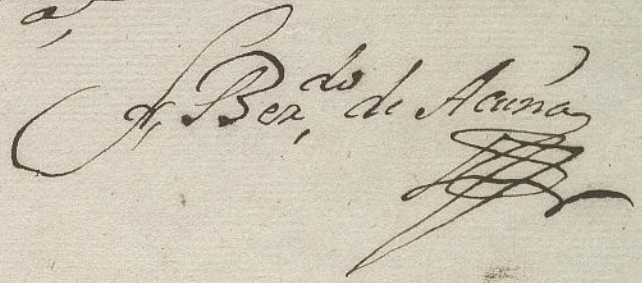 Fr, Ber,do de Acuña